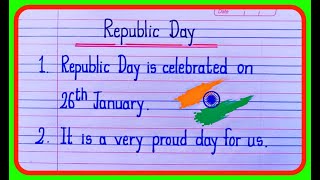 Republic Day
1. Republic Day is celebrated on
26th January.
2. It is a very proud day for us.